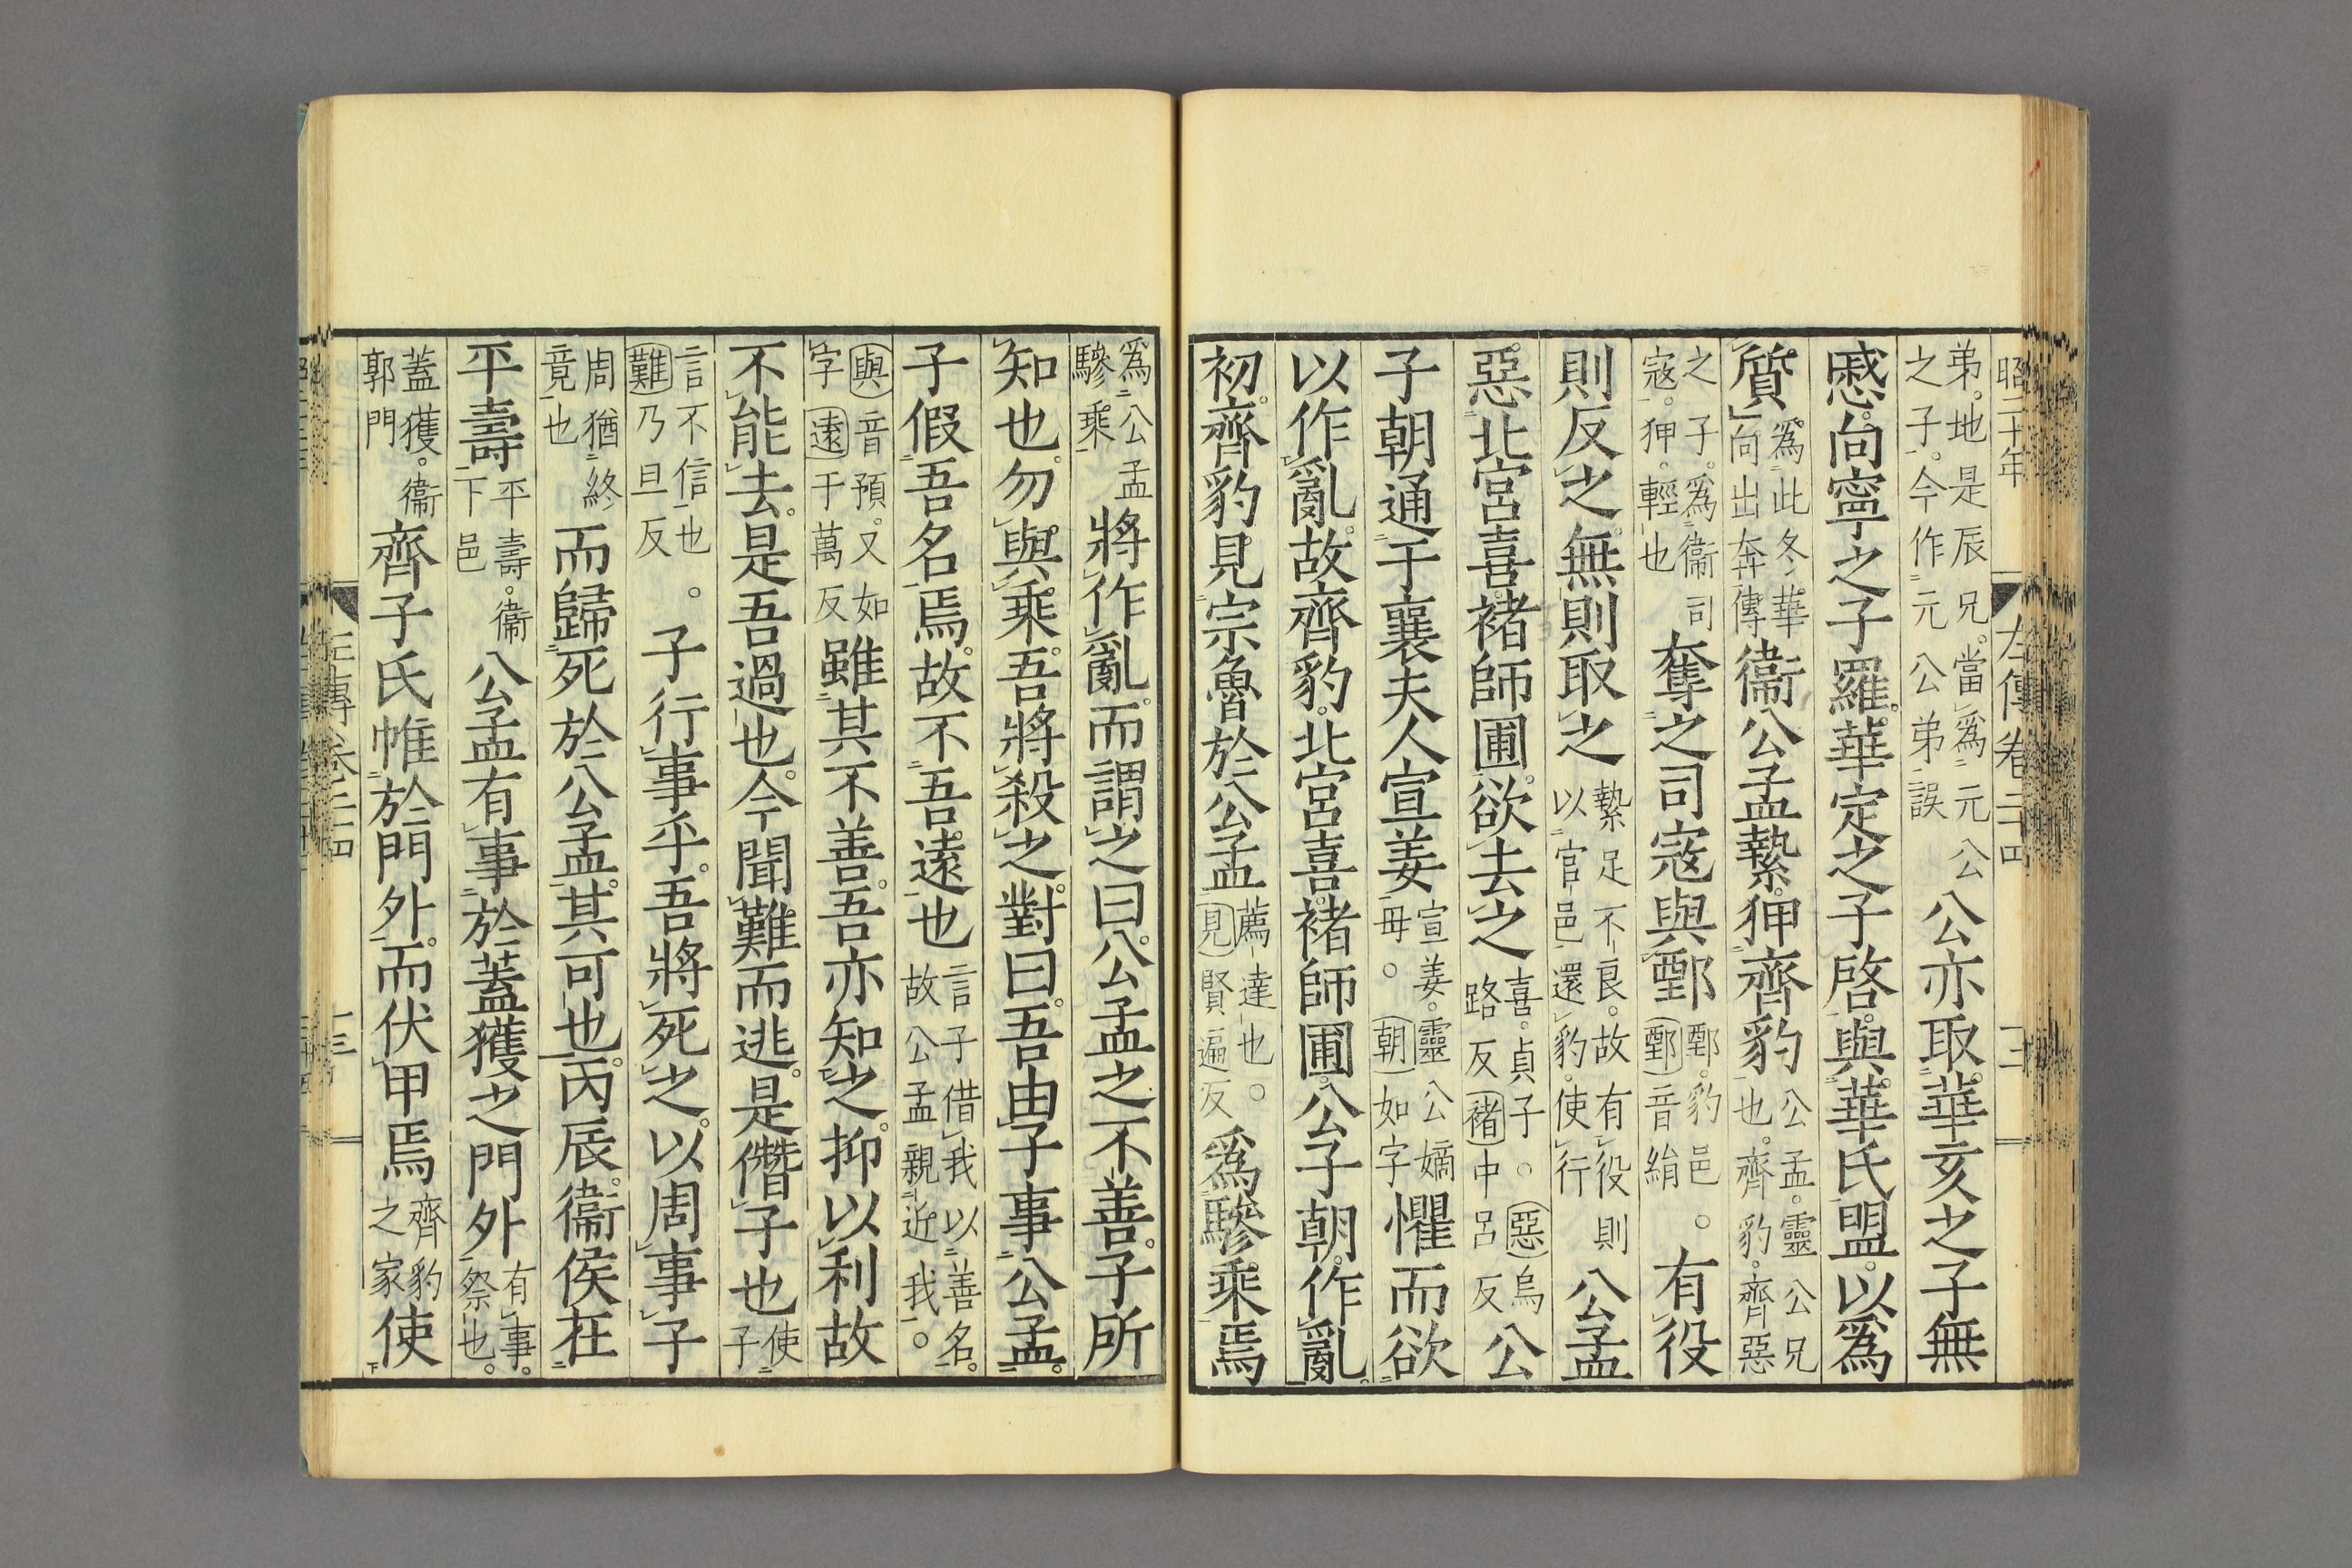 昭二十年 左傳卷二十四 十三
弟。地是辰兄。當爲元公之子。今作元公弟誤 公亦取華亥之子無
慼。向寧之子羅。華定之子啓。與華氏盟。以爲
質 爲此冬華向出奔傳 衞公孟縶狎齊豹 公孟。靈公兄也。齊豹。齊惡
之子。爲衞司寇。狎。輕也 奪之司寇與鄄 鄄。豹邑。鄄音絹。有役
則反之。無則取之 縶足不良。故有役則以官邑還豹。使行 公孟
惡北宮喜褚師圃。欲去之 喜。貞子。惡烏路反褚中呂反 公
子朝通于襄夫人宣姜 宣姜。靈公嫡母。朝如字 懼而欲
以作亂。故齊豹。北宮喜。褚師圃。公子朝。作亂。
初。齊豹見宗魯於公孟 薦達也。見賢遍反 爲驂乘焉
爲公孟驂乘 將作亂。而謂之曰。公孟之不善。子所
知也。勿與乘。吾將殺之。對曰。吾由子事公孟。
子假吾名焉。故不吾遠也 言子借我以善名。故公孟親近我。
與音預。又如字遠于萬反 雖其不善。吾亦知之。抑以利故
不能去。是吾過也。今聞難而逃。是僭子也 使子
言不信也難乃旦反。子行事乎。吾將死之。以周事子
周猶終竟也 而歸死於公孟。其可也。丙辰。衞侯在
平壽 平壽。衞下邑 公孟有事於蓋獲之門外 有事。祭也。
蓋獲。衞郭門 齊子氏帷於門外。而伏甲焉 齊豹之家 使